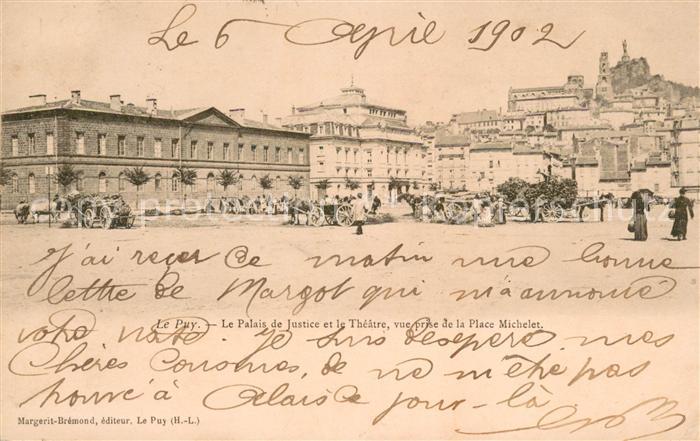 Le 6 Avril 1902
J'ai reçu Ce matin une bonne
lettre de Margot qui m'annonce
Le Puy. — Le Palais de Justice et le Théâtre, vue prise de la Place Michelet.
votre visite. Je suis désespéré, mes
Chères Cousines, de ne m'être pas
trouvé à Alais ce jour-là.
Margerit-Brémond, éditeur, Le Puy (H.-L.)